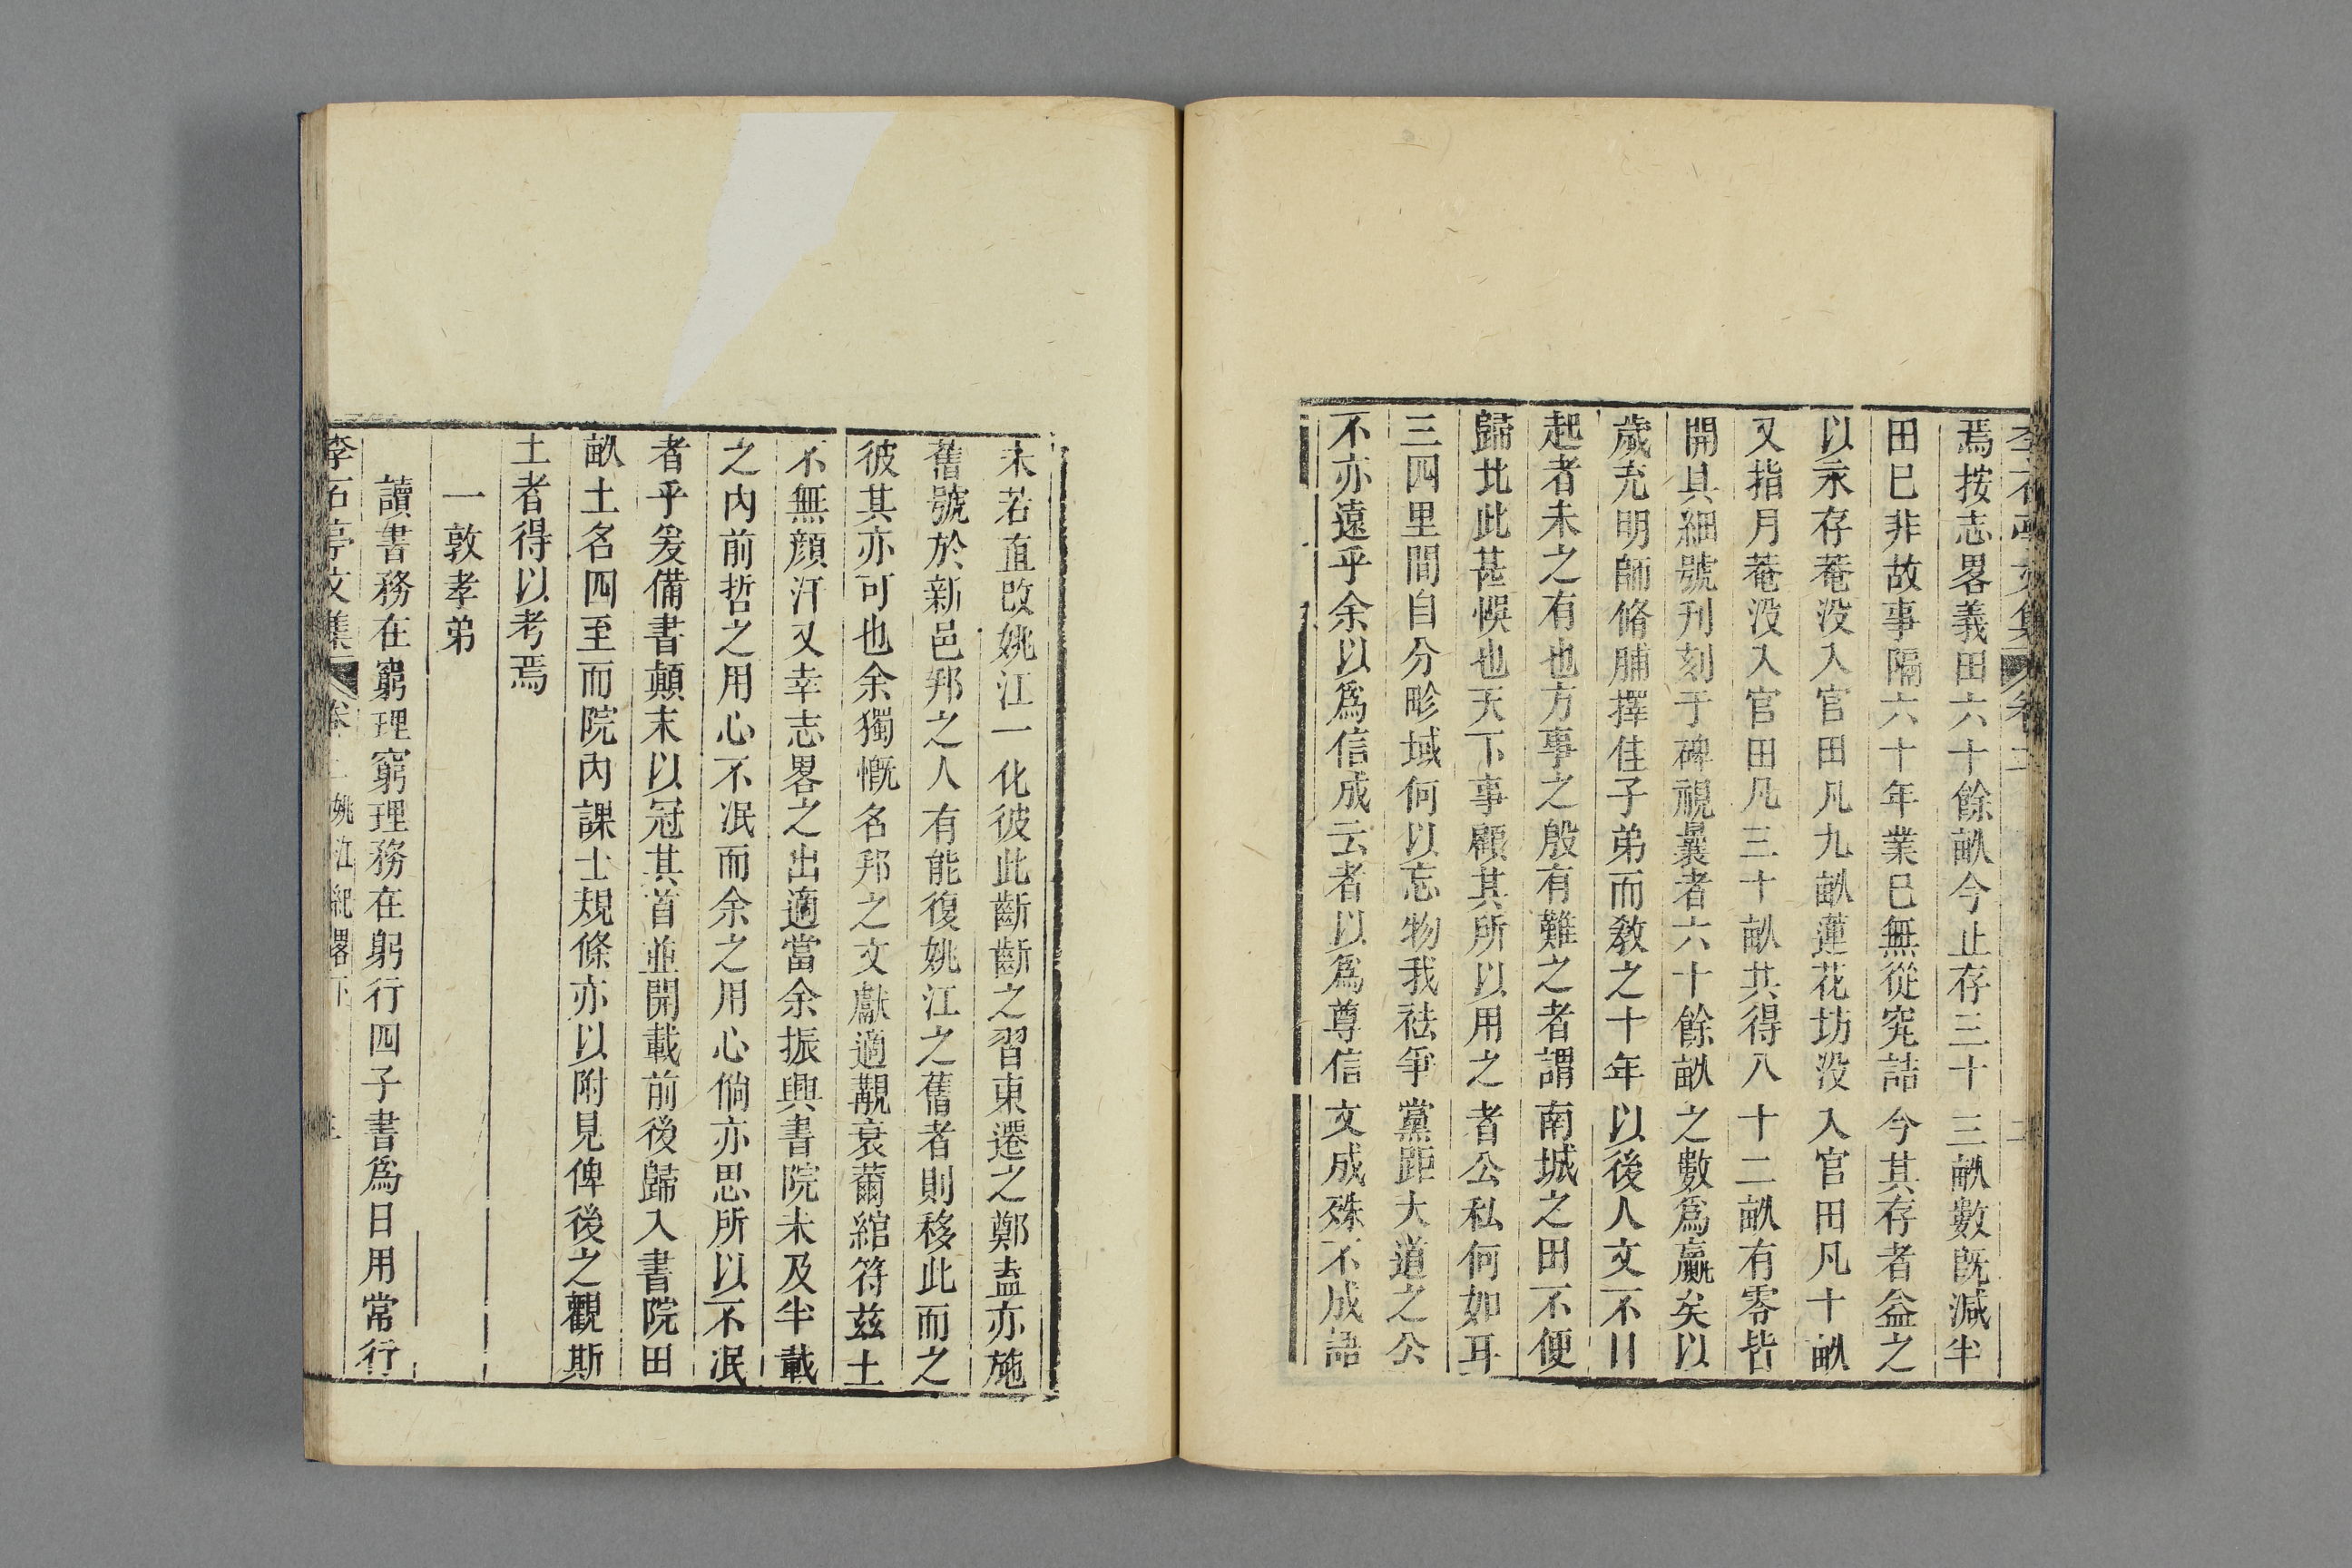 李石亭文集 卷二 二
焉按志畧義田六十餘畝今止存三十三畝數既減半
田巳非故事隔六十年業巳無從究詰今其存者益之
以永存菴没入官田凡九畝蓮花坊没入官田凡十畝
又指月菴没入官田凡三十畝共得八十二畝有零皆
開具細號刊刻于碑視曩者六十餘畝之數爲贏矣以
歲充明師脩脯擇佳子弟而敎之十年以後人文不日
起者未之有也方事之殷有難之者謂南城之田不便
歸北此甚悞也天下事顧其所以用之者公私何如耳
三四里間自分畛域何以忘物我祛爭黨距大道之公
不亦遠乎余以爲信成云者以爲尊信文成殊不成語
未若直改姚江一化彼此齗齗之習東遷之鄭盍亦施
舊號於新邑邦之人有能復姚江之舊者則移此而之
彼其亦可也余獨慨名邦之文獻適覯衰薾綰符兹土
不無顏汗又幸志畧之出適當余振興書院未及半載
之内前哲之用心不泯而余之用心倘亦思所以不泯
者乎爰備書顛末以冠其首並開載前後歸入書院田
畝土名四至而院内課士規條亦以附見俾後之觀斯
土者得以考焉
一敦孝弟
讀書務在窮理窮理務在躬行四子書爲日用常行
李石亭文集 卷二 姚江紀畧下 三